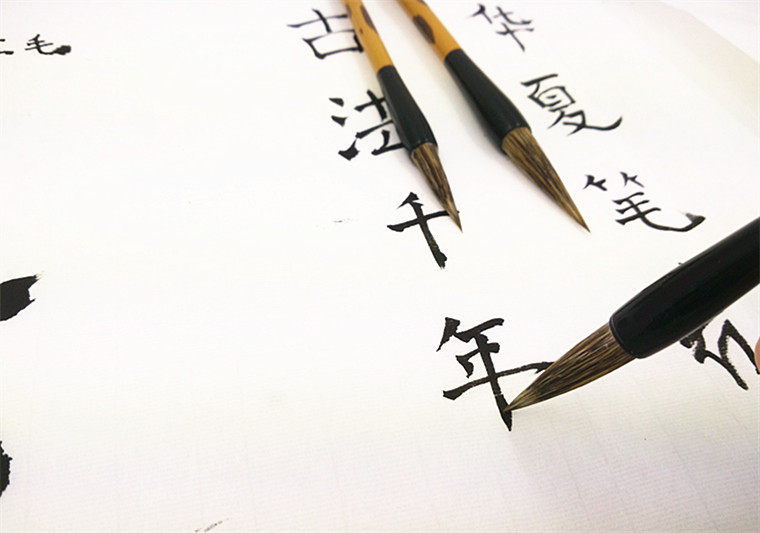 华夏笔
古法千年
毛